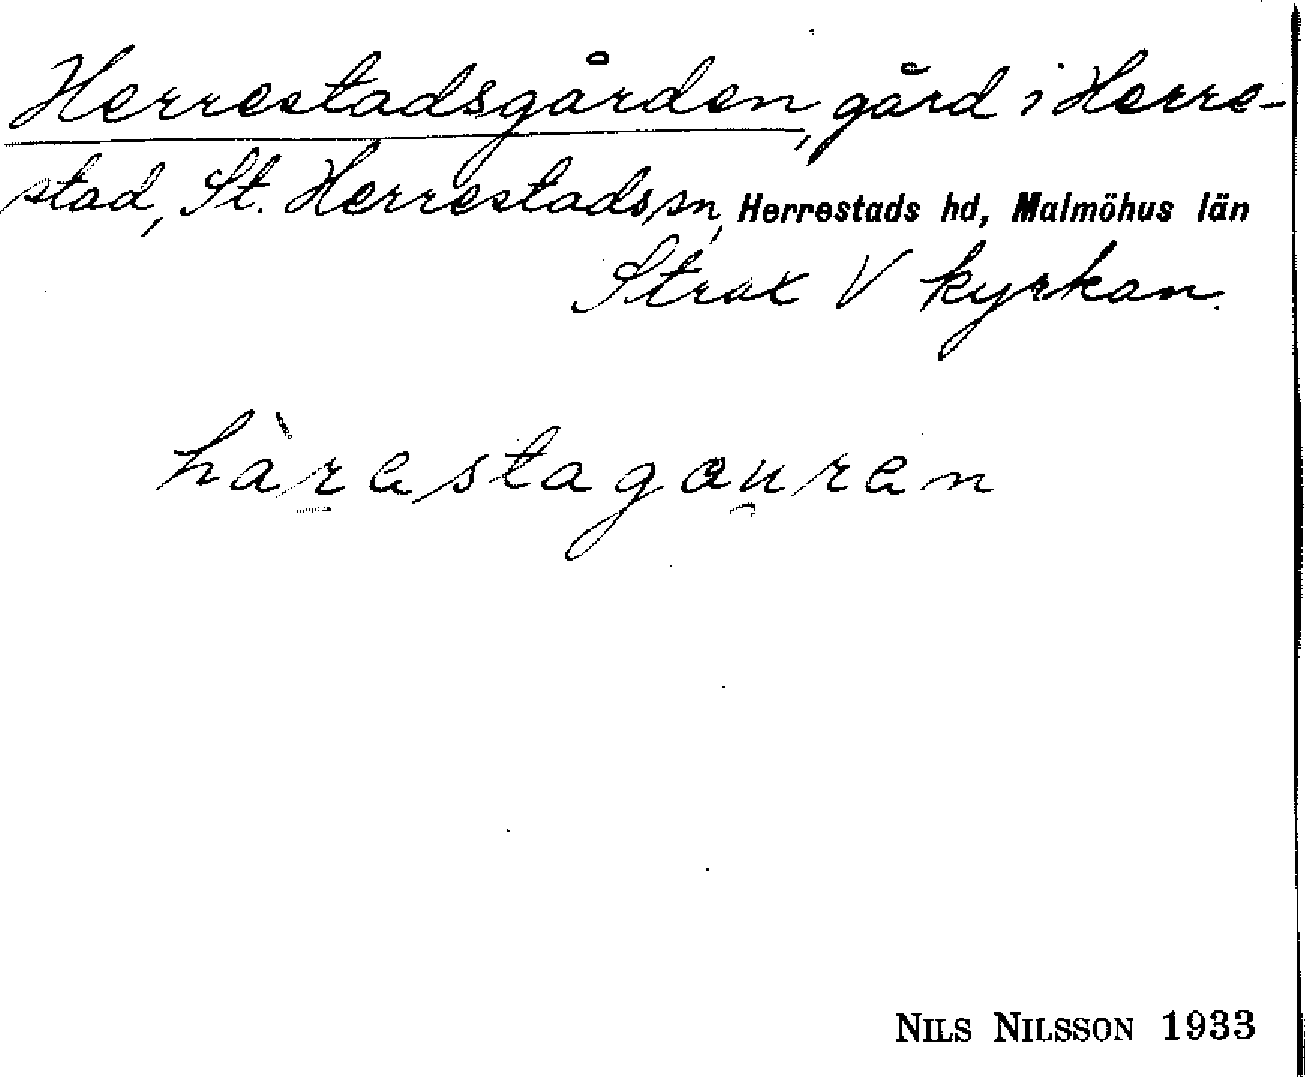 Herrestadsgården, gård i Herre-
stad, St. Herrestads sn, Herrestads hd, Malmöhus län
Strax V kyrkan.
hàrestagau̯ren
NILS NILSSON 1933